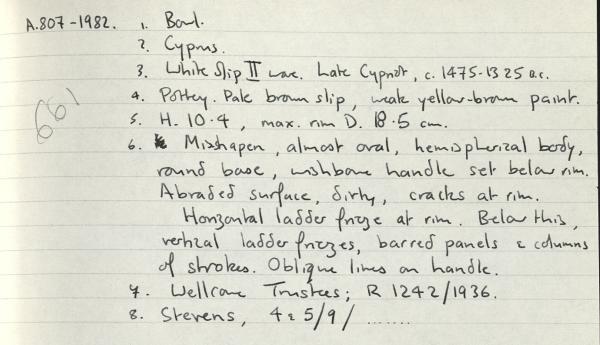 A.807-1982. 1. Bowl.
2. Cyprus.
3. White Slip II ware. Late Cypriot, c. 1475-1325 B.C.
4. Pottery. Pale brown slip, weak yellow-brown paint.
5. H. 10.4, max. rim D. 18.5 cm.
661
6. Misshapen, almost oval, hemispherical body,
round base, wishbone handle set below rim.
Abraded surface, dirty, cracks at rim.
Horizontal ladder frieze at rim. Below this,
vertical ladder friezes, barred panels & columns
of strokes. Oblique lines on handle.
7. Wellcome Trustees; R 1242/1936.
8. Stevens, 4 & 5/9/ ........